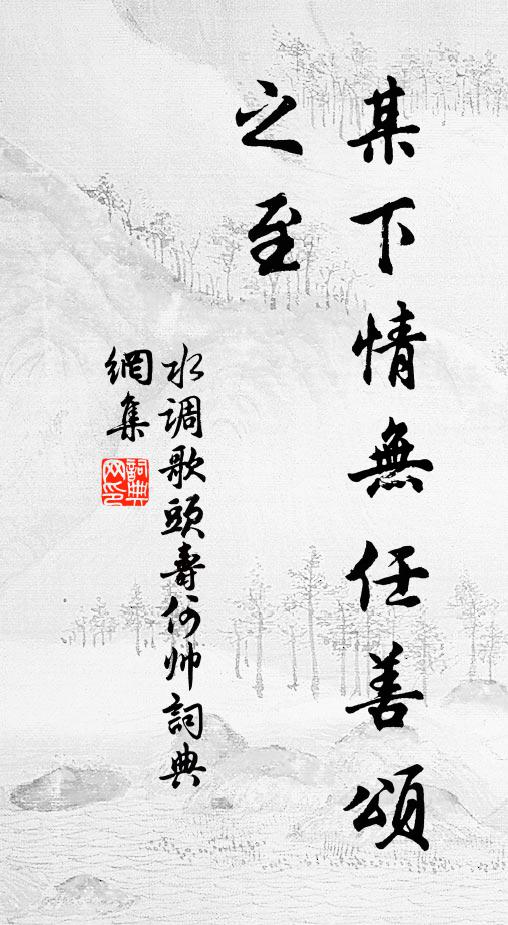 某下情無任善頌
之至
水调歌頭壽何帅詞典
網集
詞典
网印